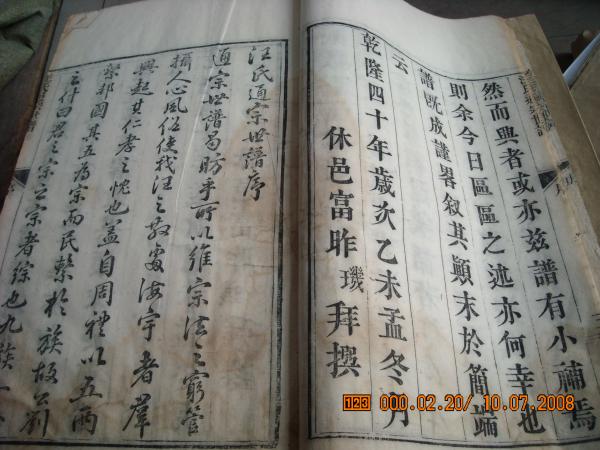 然而興者或亦茲譜有小補焉
則余今日區區之述亦何幸也
譜既成謹畧叙其顛末於簡端
云
乾隆四十年歲次乙未孟冬月
休邑富昨璣拜撰
汪氏通宗世譜序
通宗世譜曷昉乎所以維宗法之窮管
攝人心風俗使我汪之散處海宇者羣
興起其仁孝之愧也蓋自周禮以五兩
繫邦國其五爲宗而民繫於族故公劉
之什曰君之宗之宗者綜也九族一
000.02.20/ 10.07.2008